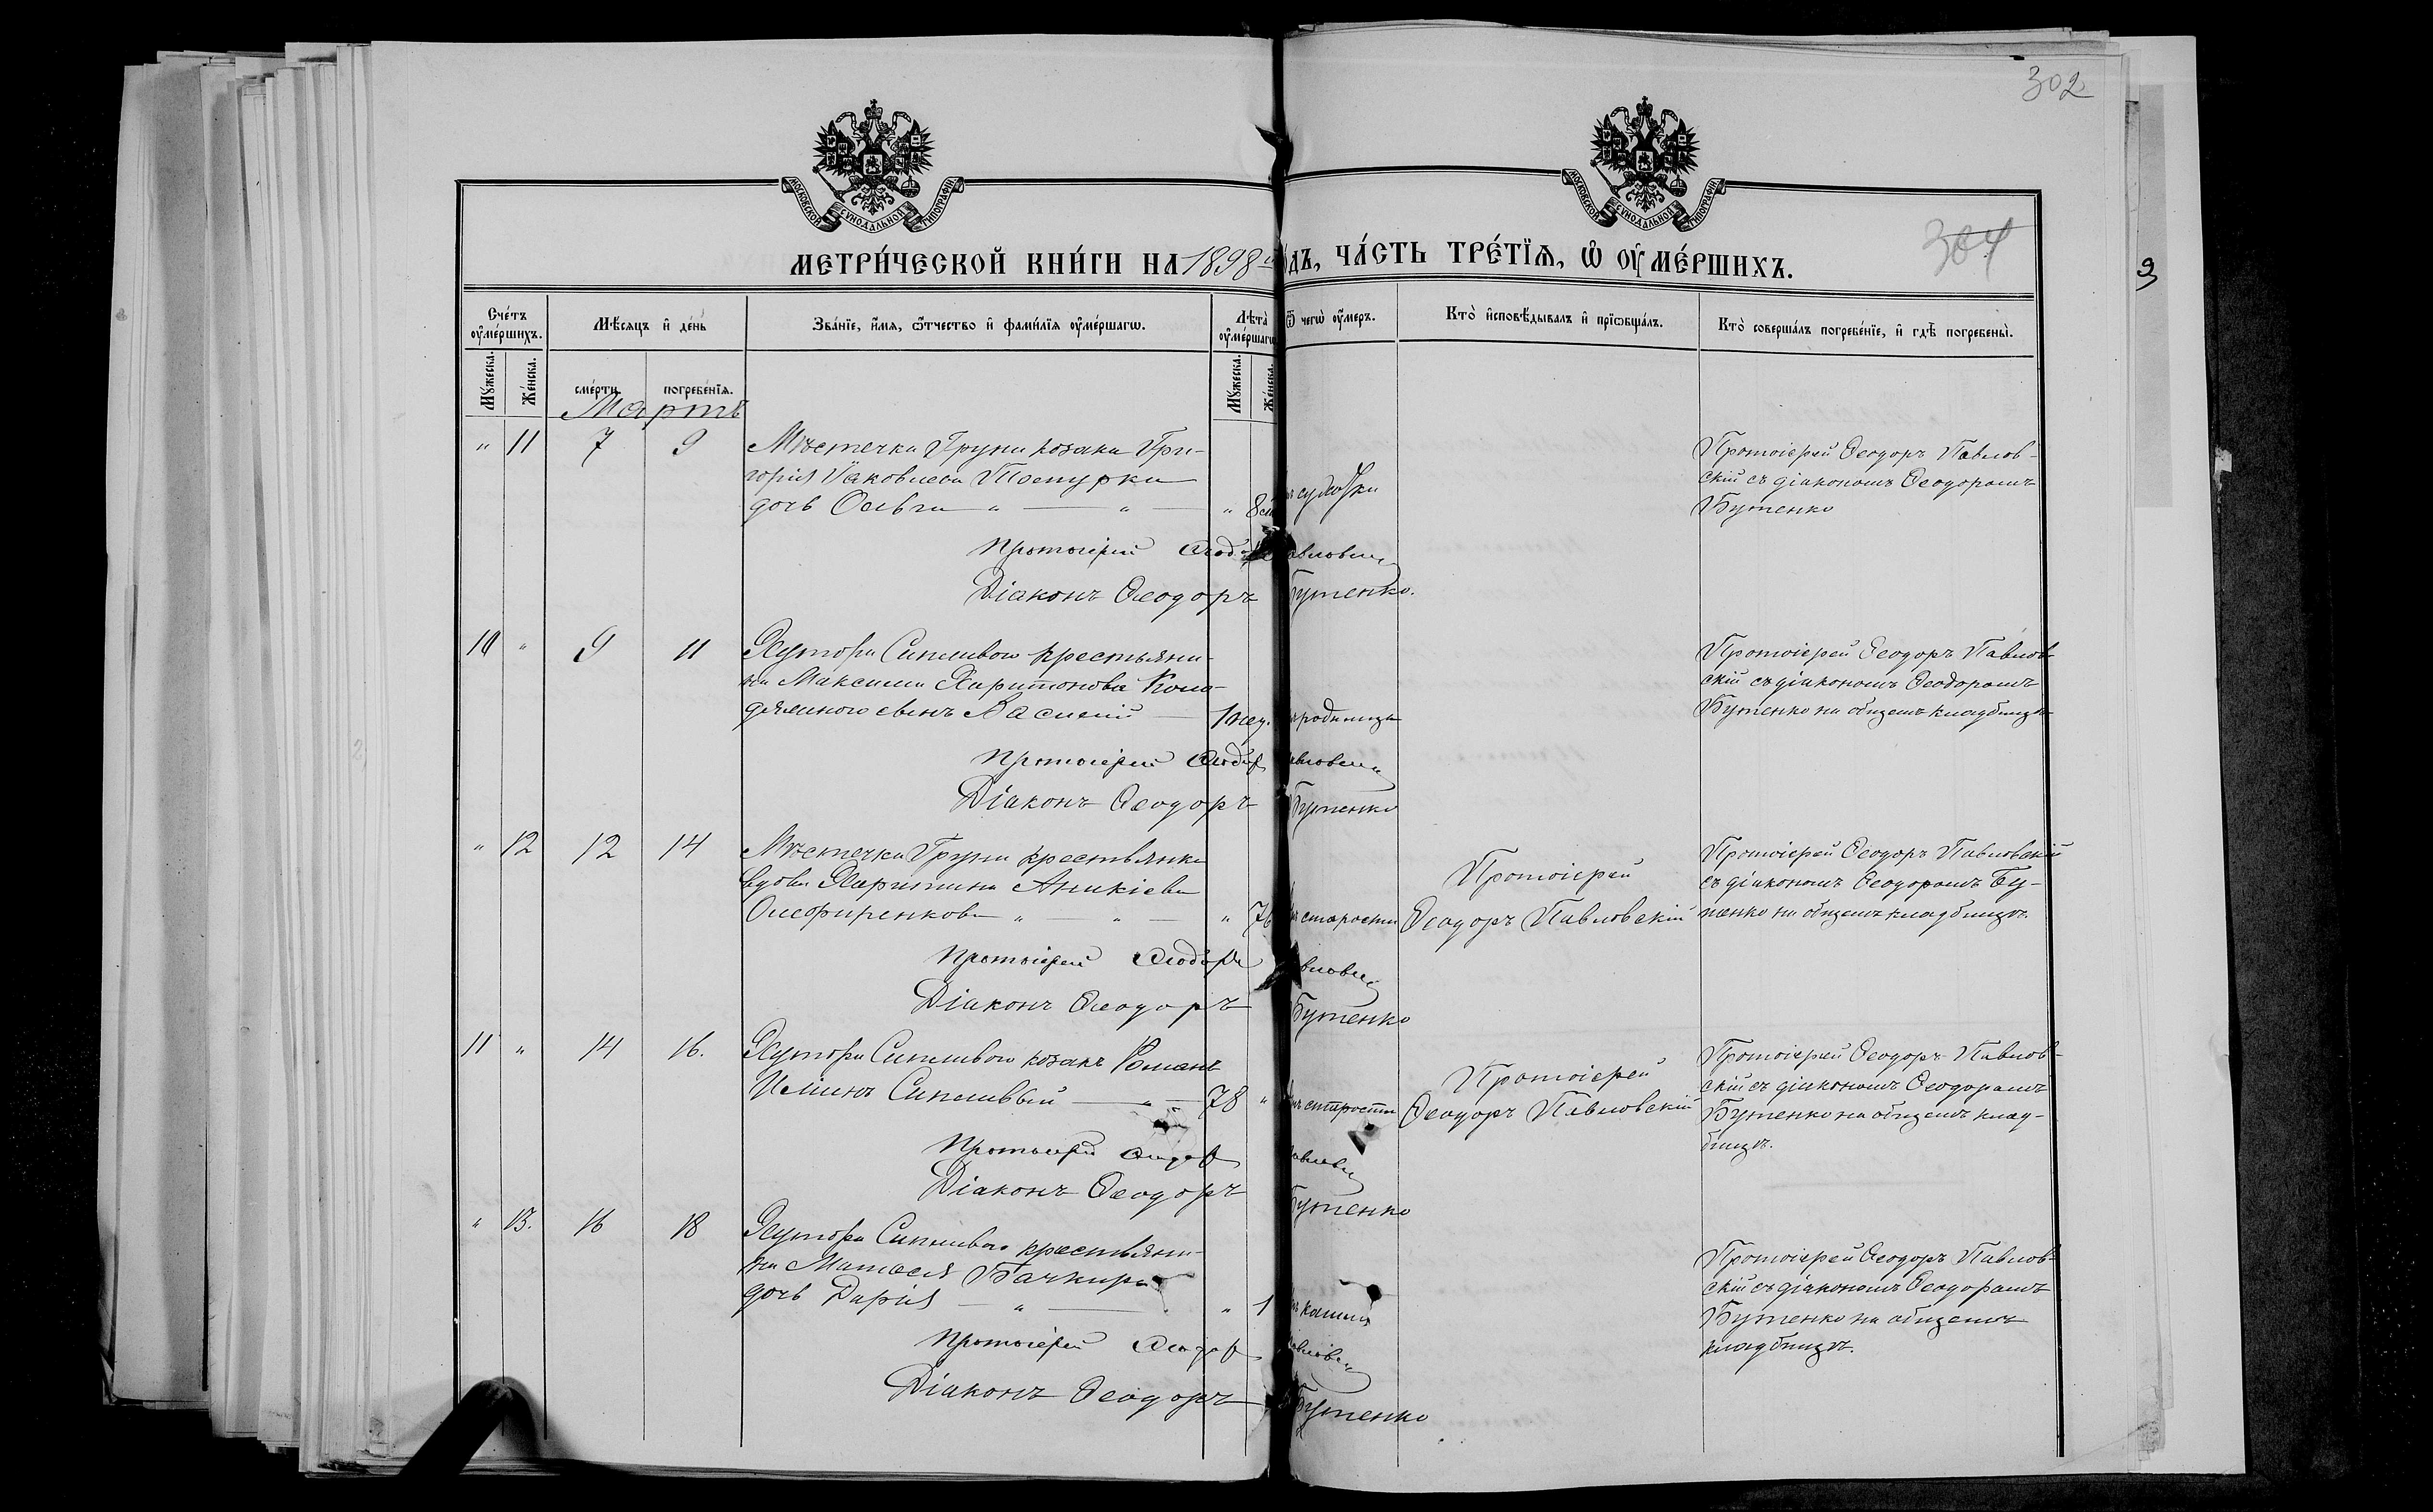 302
304
МОСКОВСКОЙ СѴНОДАЛЬНОЙ ТИПОГРАФІИ
МОСКОВСКОЙ СѴНОДАЛЬНОЙ ТИПОГРАФІИ
МЕТРИ́ЧЕСКОЙ КНИ́ГИ НА 1898
ДЪ, ЧА́СТЬ ТРЕ́ТЇѦ, Ѡ҆ ОУ҆МЕ́РШИХЪ.
Сче́тъ оу҆ме́ршихъ.
Мѣ́сѧцъ и҆ де́нь
Зва́нїе, и҆́мѧ, ѻ҆́тчество и҆ фами́лїѧ оу҆ме́ршагѡ.
Лѣта̀ оу҆ме́ршагѡ
Ѿ чегѡ̀ оу҆́меръ.
Кто̀ и҆сповѣ́дывалъ и҆ прїѡбща́лъ.
Кто̀ соверша́лъ погребе́нїе, и҆ гдѣ̀ погребены̀.
Мꙋ́жеска.
Же́нска.
сме́рти.
погребе́нїѧ.
Мꙋ́жеска.
Же́нска.
Мартъ
" 11 7 9 Мѣстечка Груни козака Гри-
горія Іаковлева
дочь Ольга " " " 8
Протоіерей Ѳеодоръ Павлов-
скій съ діакономъ Ѳеодоромъ
Бутенко
Протоіерей Ѳеодоръ
Діаконъ Ѳеодоръ Бутенко.
10 " 9 11 Хутора Сипливого крестьяни-
на Максима Харитонова Коло-
дяжного сынъ Василій 1 нед. родимца
Протоіерей Ѳеодоръ Павлов-
скій съ діакономъ Ѳеодоромъ
Бутенко на общемъ кладбищѣ
Протоіерей Ѳеодоръ
Діаконъ Ѳеодоръ Бутенко
" 12 12 14 Мѣстечка Груни крестьянка
вдова Харитина Аникіева
Олефиренкова " " " 76 старости
Протоіерей
Ѳеодоръ Павловскій
Протоіерей Ѳеодоръ Павловскій
съ діакономъ Ѳеодоромъ Бу-
тенко на общемъ кладбищѣ.
Протоіерей Ѳеодоръ
Діаконъ Ѳеодоръ Бутенко
11 " 14 16. Хутора Сипливого козакъ Романъ
Ильинъ Сипливый " 78 " старости
Протоіерей
Ѳеодоръ Павловскій
Протоіерей Ѳеодоръ Павлов-
скій съ діакономъ Ѳеодоромъ
Бутенко на общемъ клад-
бищѣ.
Протоіерей Ѳеодоръ
Діаконъ Ѳеодоръ Бутенко
" 13. 16 18 Хутора Сипливого крестьяни-
на Матвея
дочь Дарія " " 1 кашля
Протоіерей Ѳеодоръ Павлов-
скій съ діакономъ Ѳеодоромъ
Бутенко на общемъ
кладбищѣ.
Протоіерей Ѳеодоръ
Діаконъ Ѳеодоръ Бутенко